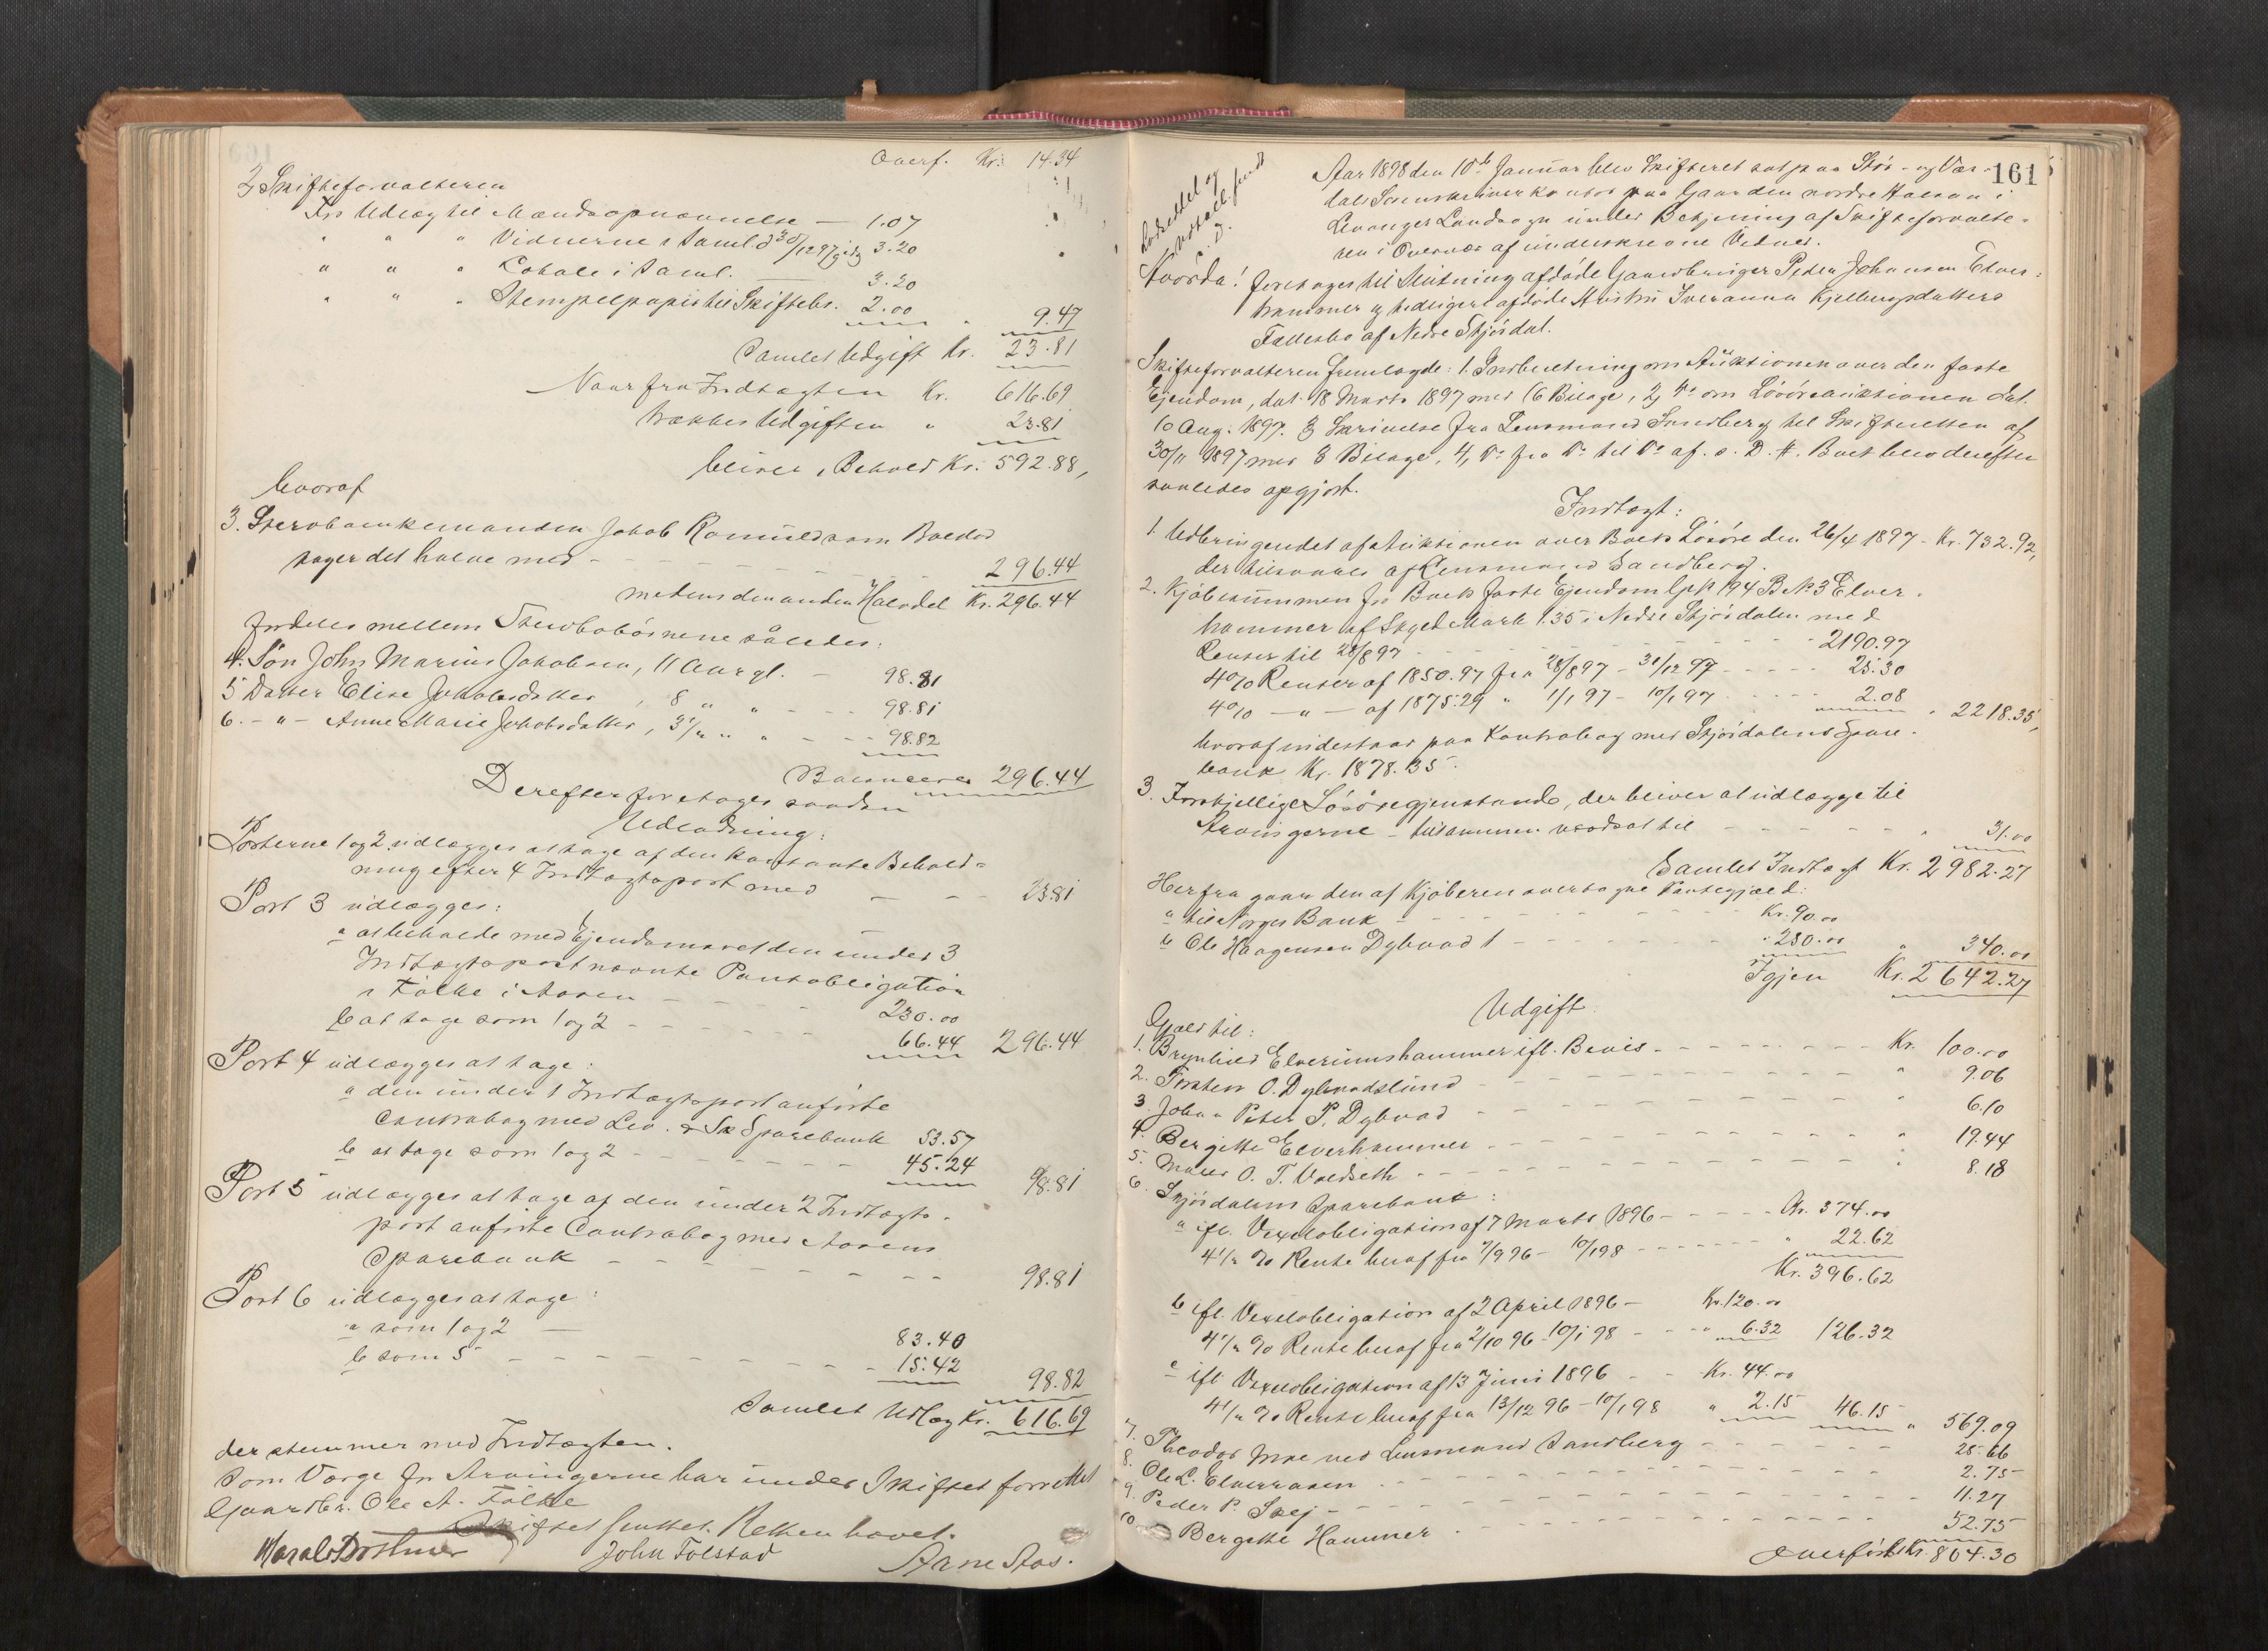 Overf. Kr. 14.34
2, Skifteforvalteren
For Udlæg til Mændsopnævnelse — 1.07
" " " Vidnerne i Saml. d 30/12 97 3.20
" " " Lokale i Saml. — 3.20
" " " Stempelpapir til Skiftebr. 2.00 " 9.47
Samlet Udgift Kr. 23.81
Naar fra Indtægten Kr. 616.69
trækkes Udgiften " 23.81
bliver i Behold Kr. 592.88,
hvoraf
3. Stervboenkemanden Jakob Romuldsen
tager det halve med - - - 296.44
medens den anden Halvdel Kr. 296.44
fordeles mellem Stervbobørnene således:
4. Søn John Marius Jakobsen, 11 Aar gl. - 98.81
5 Datter Elise Jakobsdatter, 8 " " - - - 98.81
6. - " - Anne Marie Jakobsdatter, 3 1/2 " " - - - 98.82
Balancerer 296.44
Derefter foretages saadan
Udlodning:
Posterne 1 og 2 udlægges at tage af den kontante Behold=
ning efter 4 Indtægtspost med — - - 23.81
Post 3 udlægges:
a at beholde med Ejendomsret den under 3
Indtægtspost nævnte Pantobligation
i Falke i Aasen - - - 230.00
b at tage som 1 og 2 - - - 66.44 296.44
Post 4 udlægges at tage:
a den under 1 Indtægtspost anførte
Contrabog med Lev. & Sk Sparebank 53.57
b at tage som 1 og 2 - - - 45.24 98.81
Post 5 udlægges at tage af den under 2 Indtægts-
post anførte Contrabog med Aasens
Sparebank - - - 98.81
Post 6 udlægges at tage:
a som 1 og 2 — 83.40
b som 5 - - - 15.42 98.82
Samlet Udlæg Kr. 616.69
der stemmer med Indtægten.
Som Værge for Arvingerne har under Skiftet forrettet
Gaardbr. Ole A. Falke
Skiftet sluttet. Retten hævet.
John Tolstad
Arne Aas.
161
Aar 1898 den 10de Januar blev Skifteret sat paa Stør- og Vær-
dals Sorenskriverkontor paa Gaarden nordre Halsan i
Levanger Landsogn under Betjening af Skifteforvalte-
ren i Overvær af underskrevne Vidner.
Hvorda! foretoges til Slutning afdøde Gaardbruger Peder Johnsen Elver-
hammer og tidligere afdøde Hustru Sveranna Kjelbergsdatters
Fællesbo af Nedre Skjørdal.
Skifteforvalteren fremlagde: 1. Indberetning om Auktionen over den faste
Ejendom, dat. 18 Marts 1897 med 6 Bilage, 2, do om Løsøreauktionen dat.
10 Aug. 1897. 3 Skrivelse fra Lensmand Sandberg til Skifteretten af
30/11 1897 med 3 Bilage, 4, do fra do til do af s. D. Boet blev derefter
saaledes opgjort.
Indtægt:
1. Udbringendet af Auktionen over Boets Løsøre den 26/4 1897 - Kr. 732.92,
der tilsvares af Lensmand Sandberg.
2. Kjøbesummen for Boets faste Ejendom G. No 194 B No 3 Elver-
hammer af Skyld Mark 1.35 i Nedre Skjørdalen med
Renter til 28/8 97 - - - 2190.97
4% Renter af 1850.97 fra 28/8 97 - 31/12 97 - - - 25.30
4% — " — af 1875.29 " 1/1 97 - 10/1 97 - - - 2.08 " 2218.35,
hvoraf indestaar paa Kontrabog med Skjørdalens Spare-
bank Kr. 1878.35.
3. Forskjellige Løsøregjenstande, der bliver at udlægge til
Arvingerne - tilsammen værdsat til - - - " 31.00
Samlet Indtægt Kr. 2982.27
Herfra gaar den af Kjøberen overtagne Pantegjæld:
a til Norges Bank - - - Kr. 90.00
b Ole Haagensen Dybvad - - - " 250.00 " 340.00
Igjen Kr. 2642.27
Udgift
Gjæld til:
1. Brynhild Elverumshammer ifl. Bevis - - - Kr. 100.00
2. Torsten O. Dybvadslund - - - " 9.06
3. Johan Peter P. Dybvad - - - " 6.10
4. Bergitte Elverhammer - - - " 19.44
5. Maler O. T. Voldseth - - - " 8.18
6. Skjørdalens Sparebank:
a ifl. Vexelobligation af 7 Marts 1896 - - - Kr. 374.00
4 1/2 % Rente heraf fra 7/9 96 - 10/1 98 - - - " 22.62
Kr. 396.62
b ifl. Vexelobligation af 2 April 1896 - Kr. 120.00
4 1/2 % Rente heraf fra 2/10 96 - 10/1 98 - - " 6.32 126.32
c ifl. Vexelobligation af 13 Juni 1896 - - Kr. 44.00
4 1/2 % Rente heraf fra 13/12 96 - 10/1 98 " 2.15 46.15 " 569.09
7. Theodor Moe ved Lensmand Sandberg - - - 25.66
8. Ole L. Elveraasen - - - 2.75
9. Peder P. Skej - - - 11.27
10. Bergitte Hammer - - - 52.75
Overføres Kr. 804.30